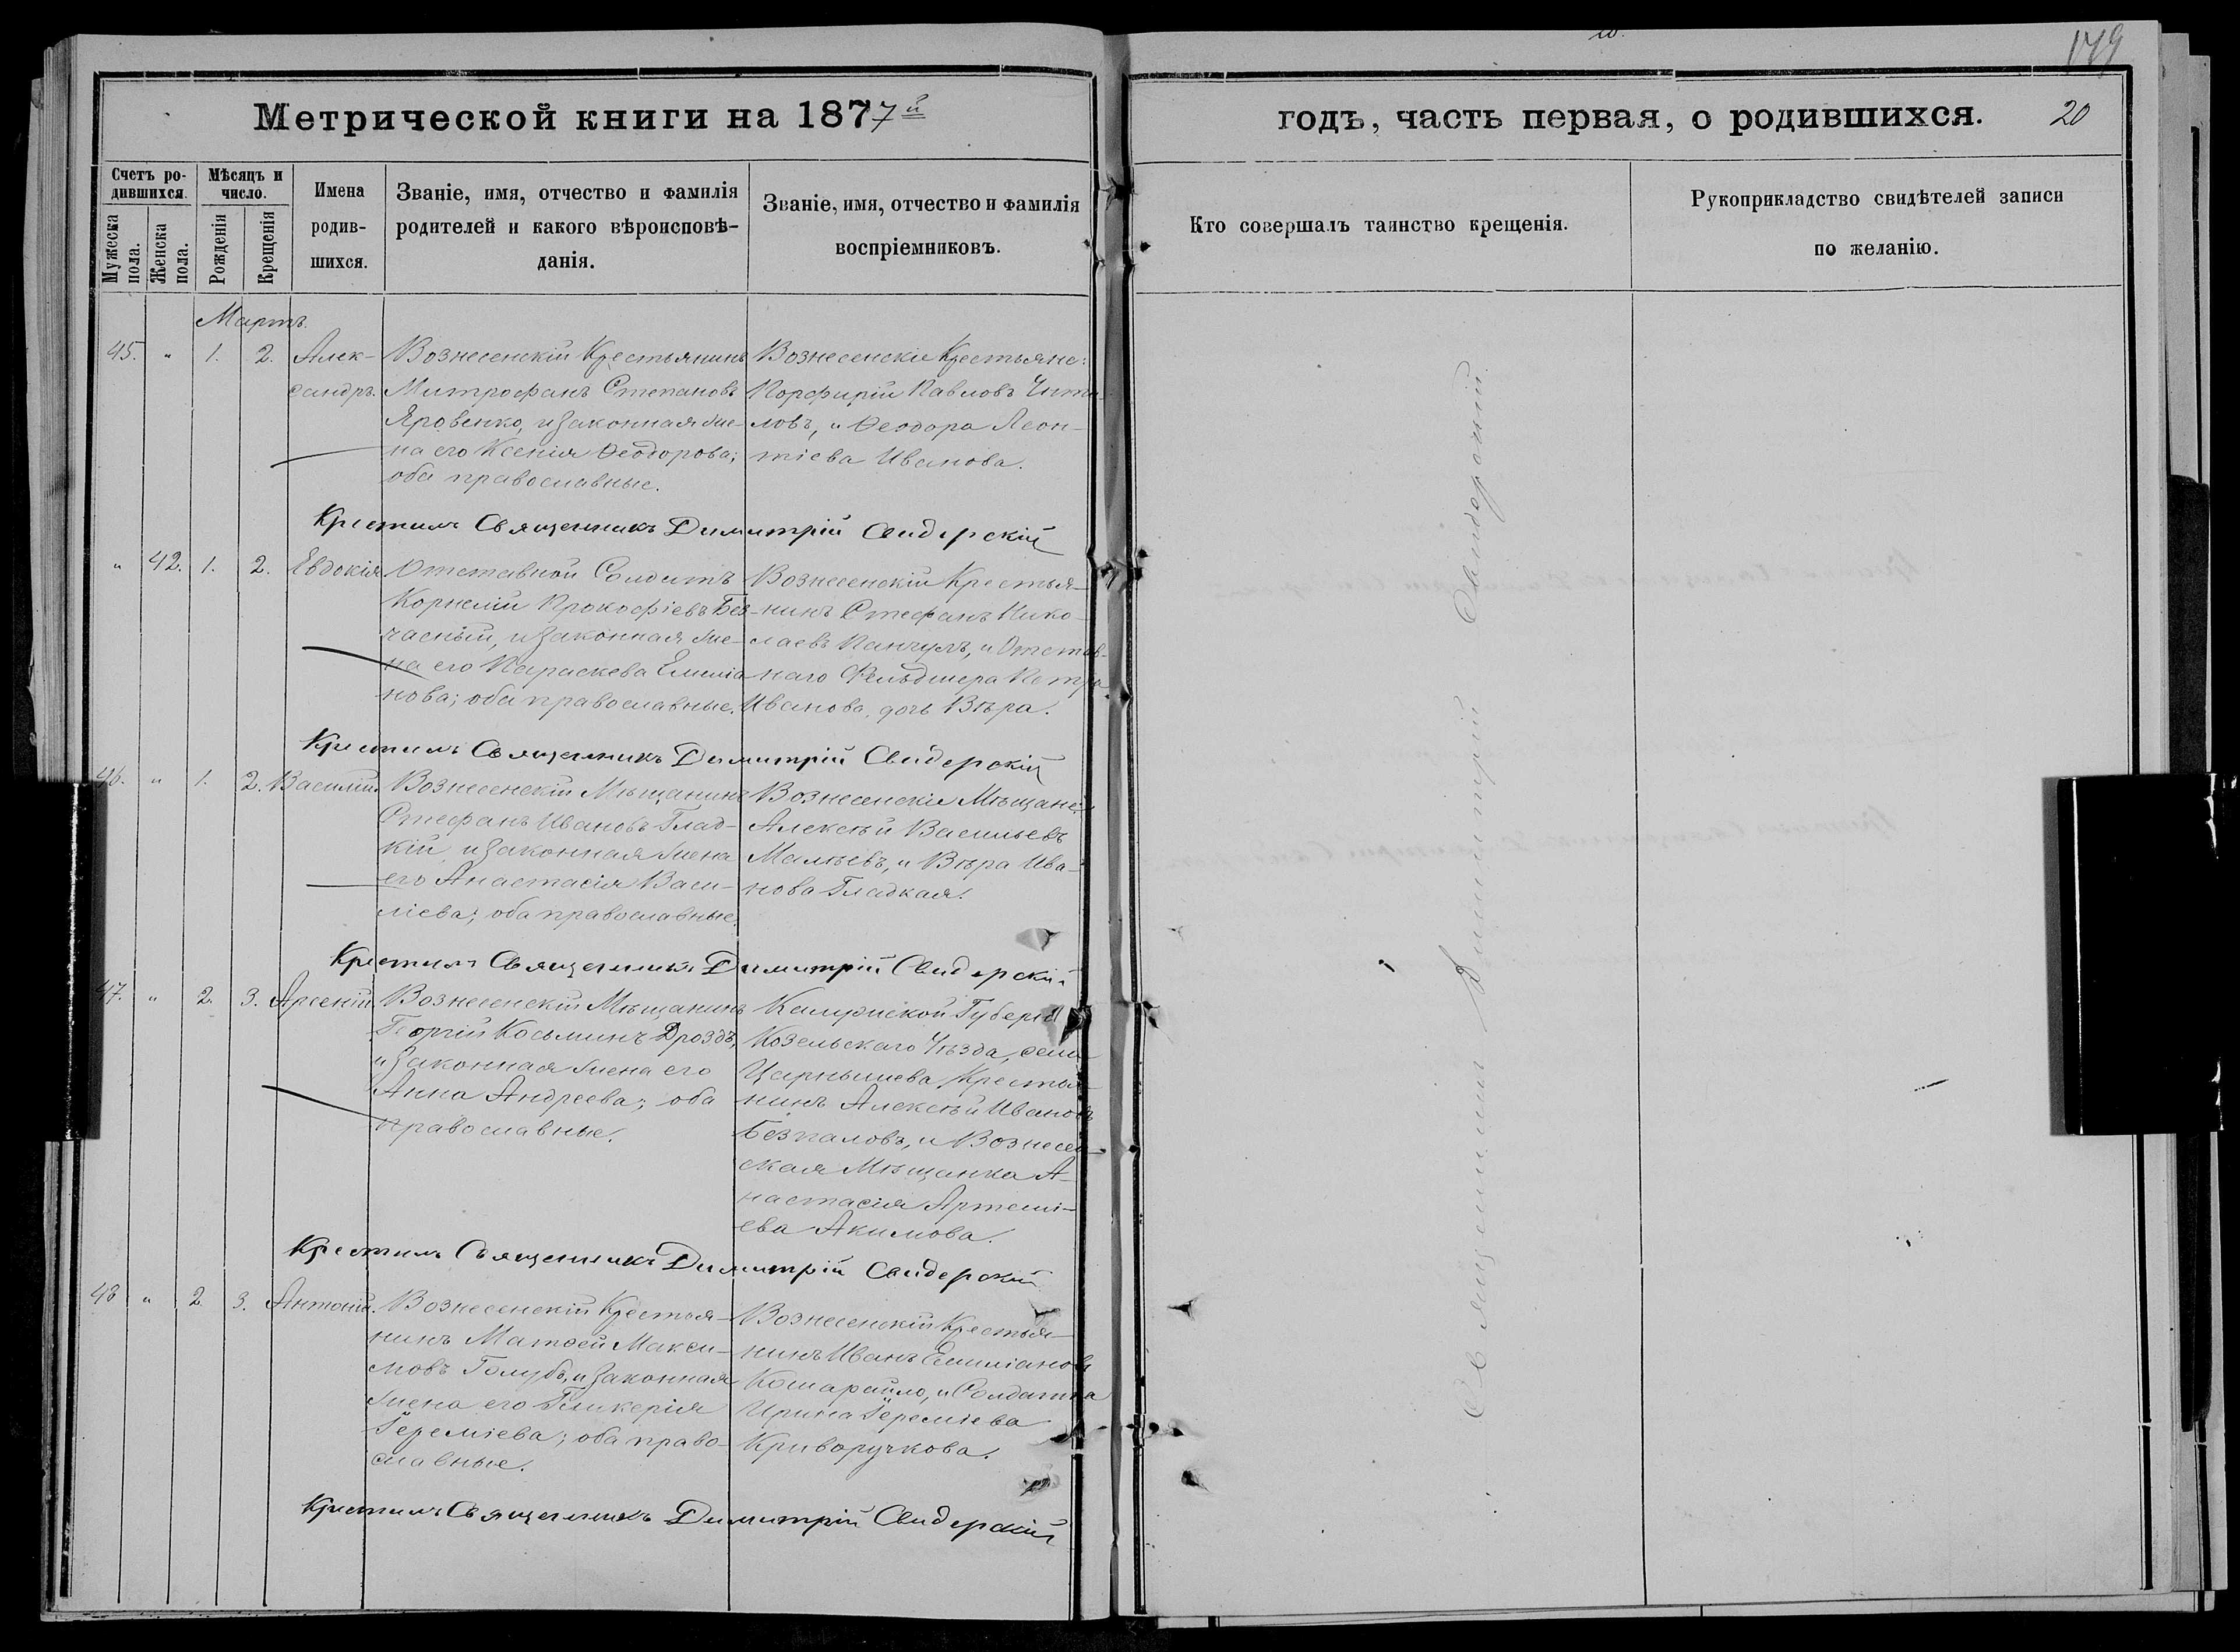 179
Метрической книги на 1877й
годъ, часть первая, о родившихся. 20
Счетъ ро-
дившихся.
Мужеска пола.
Женска пола.
Мѣсяцъ и
число.
Рожденія
Крещенія
Имена
родив-
шихся.
Званіе, имя, отчество и фамилія
родителей и какого вѣроисповѣ-
данія.
Званіе, имя, отчество и фамилія
воспріемниковъ.
Кто совершалъ таинство крещенія.
Рукоприкладство свидѣтелей записи
по желанію.
Мартъ.
45. " 1. 2. Алек-
сандръ.
Вознесенскій Крестьянинъ
Митрофанъ Степановъ
Яровенко, и законная же-
на его Ксенія Ѳеодорова;
оба православные.
Вознесенскіе Крестьяне:
Порфирій Павловъ
ловъ, и Ѳеодора Леон-
тіева Иванова.
Крестилъ Священникъ Димитрій Свидерскій
" 42. 1. 2. Евдокія
Отставной Солдатъ
Корнелій Прокофіевъ Без-
часный, и законная же-
на его Параскева Емиліа-
нова; оба православные.
Вознесенскій Крестья-
нинъ Стефанъ Нико-
лаевъ Панчулъ, и Отстав-
наго Фельдшера Петра
Иванова, дочь Вѣра.
Крестилъ Священникъ Димитрій Свидерскій
46. " 1. 2. Василій.
Вознесенскій Мѣщанинъ
Стефанъ Ивановъ Глад-
кій, и законная жена
его Анастасія Васи-
ліева; оба православные.
Вознесенскіе Мѣщане:
Алексѣй Васильевъ
Малѣевъ, и Вѣра Ива-
нова Гладкая.
Крестилъ Священникъ Димитрій Свидерскій
47. " 2. 3. Арсеній.
Вознесенскій Мѣщанинъ
Георгій Косьминъ Дроздъ,
и законная жена его
Анна Андреева; оба
православные.
Калужской Губерніи
Козельскаго Уѣзда, села
Крестья-
нинъ Алексѣй Ивановъ
Безпаловъ, и Вознесен-
ская Мѣщанка А-
настасія Артеми-
ева Акимова.
Крестилъ Священникъ Димитрій Свидерскій
48 " 2 3. Антоній.
Вознесенскій Крестья-
нинъ Матѳей Макси-
мовъ Голубъ, и законная
жена его Гликерія
Іереміева; оба право-
славные.
Вознесенскій Крестья-
нинъ Иванъ Емиліановъ
Кошарайло, и Солдатка
Ирина Іереміева
Криворучкова.
Крестилъ Священникъ Димитрій Свидерскій
Священникъ Димитрій Свидерскій.